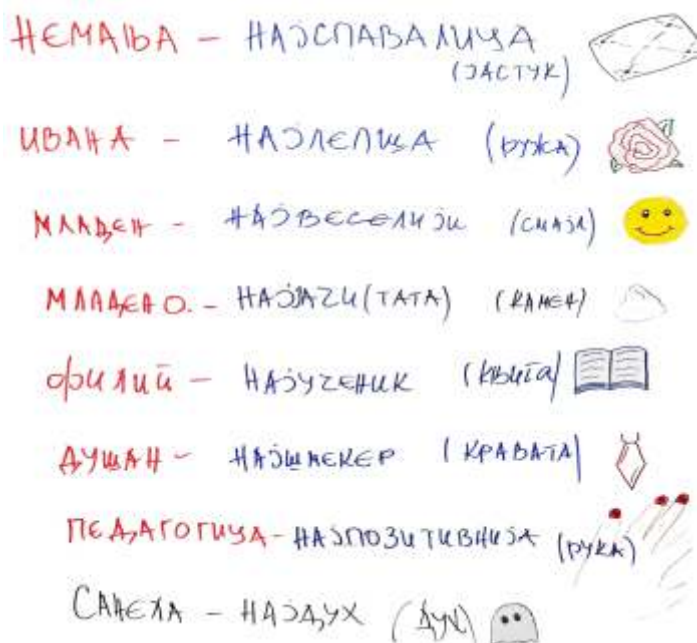 НЕМАЊА – НАЈСПАВАЛИЦА
(ЈАСТУК)
ИВАНА – НАЈЛЕПИЦА (РУЖА)
МЛАДЕН – НАЈВЕСЕЛИЈИ (СМАЈЛ)
МЛАДЕН О. – НАЈЈАЧИ (ТАТА) (КАМЕН)
ФИЛИП – НАЈУЧЕНИК (КЊИГА)
ДУШАН – НАЈШМЕКЕР (КРАВАТА)
ПЕДАГОГИЦА – НАЈПОЗИТИВНИЈА (РУКА)
САНЕЛА – НАЈДУХ (ДУХ)